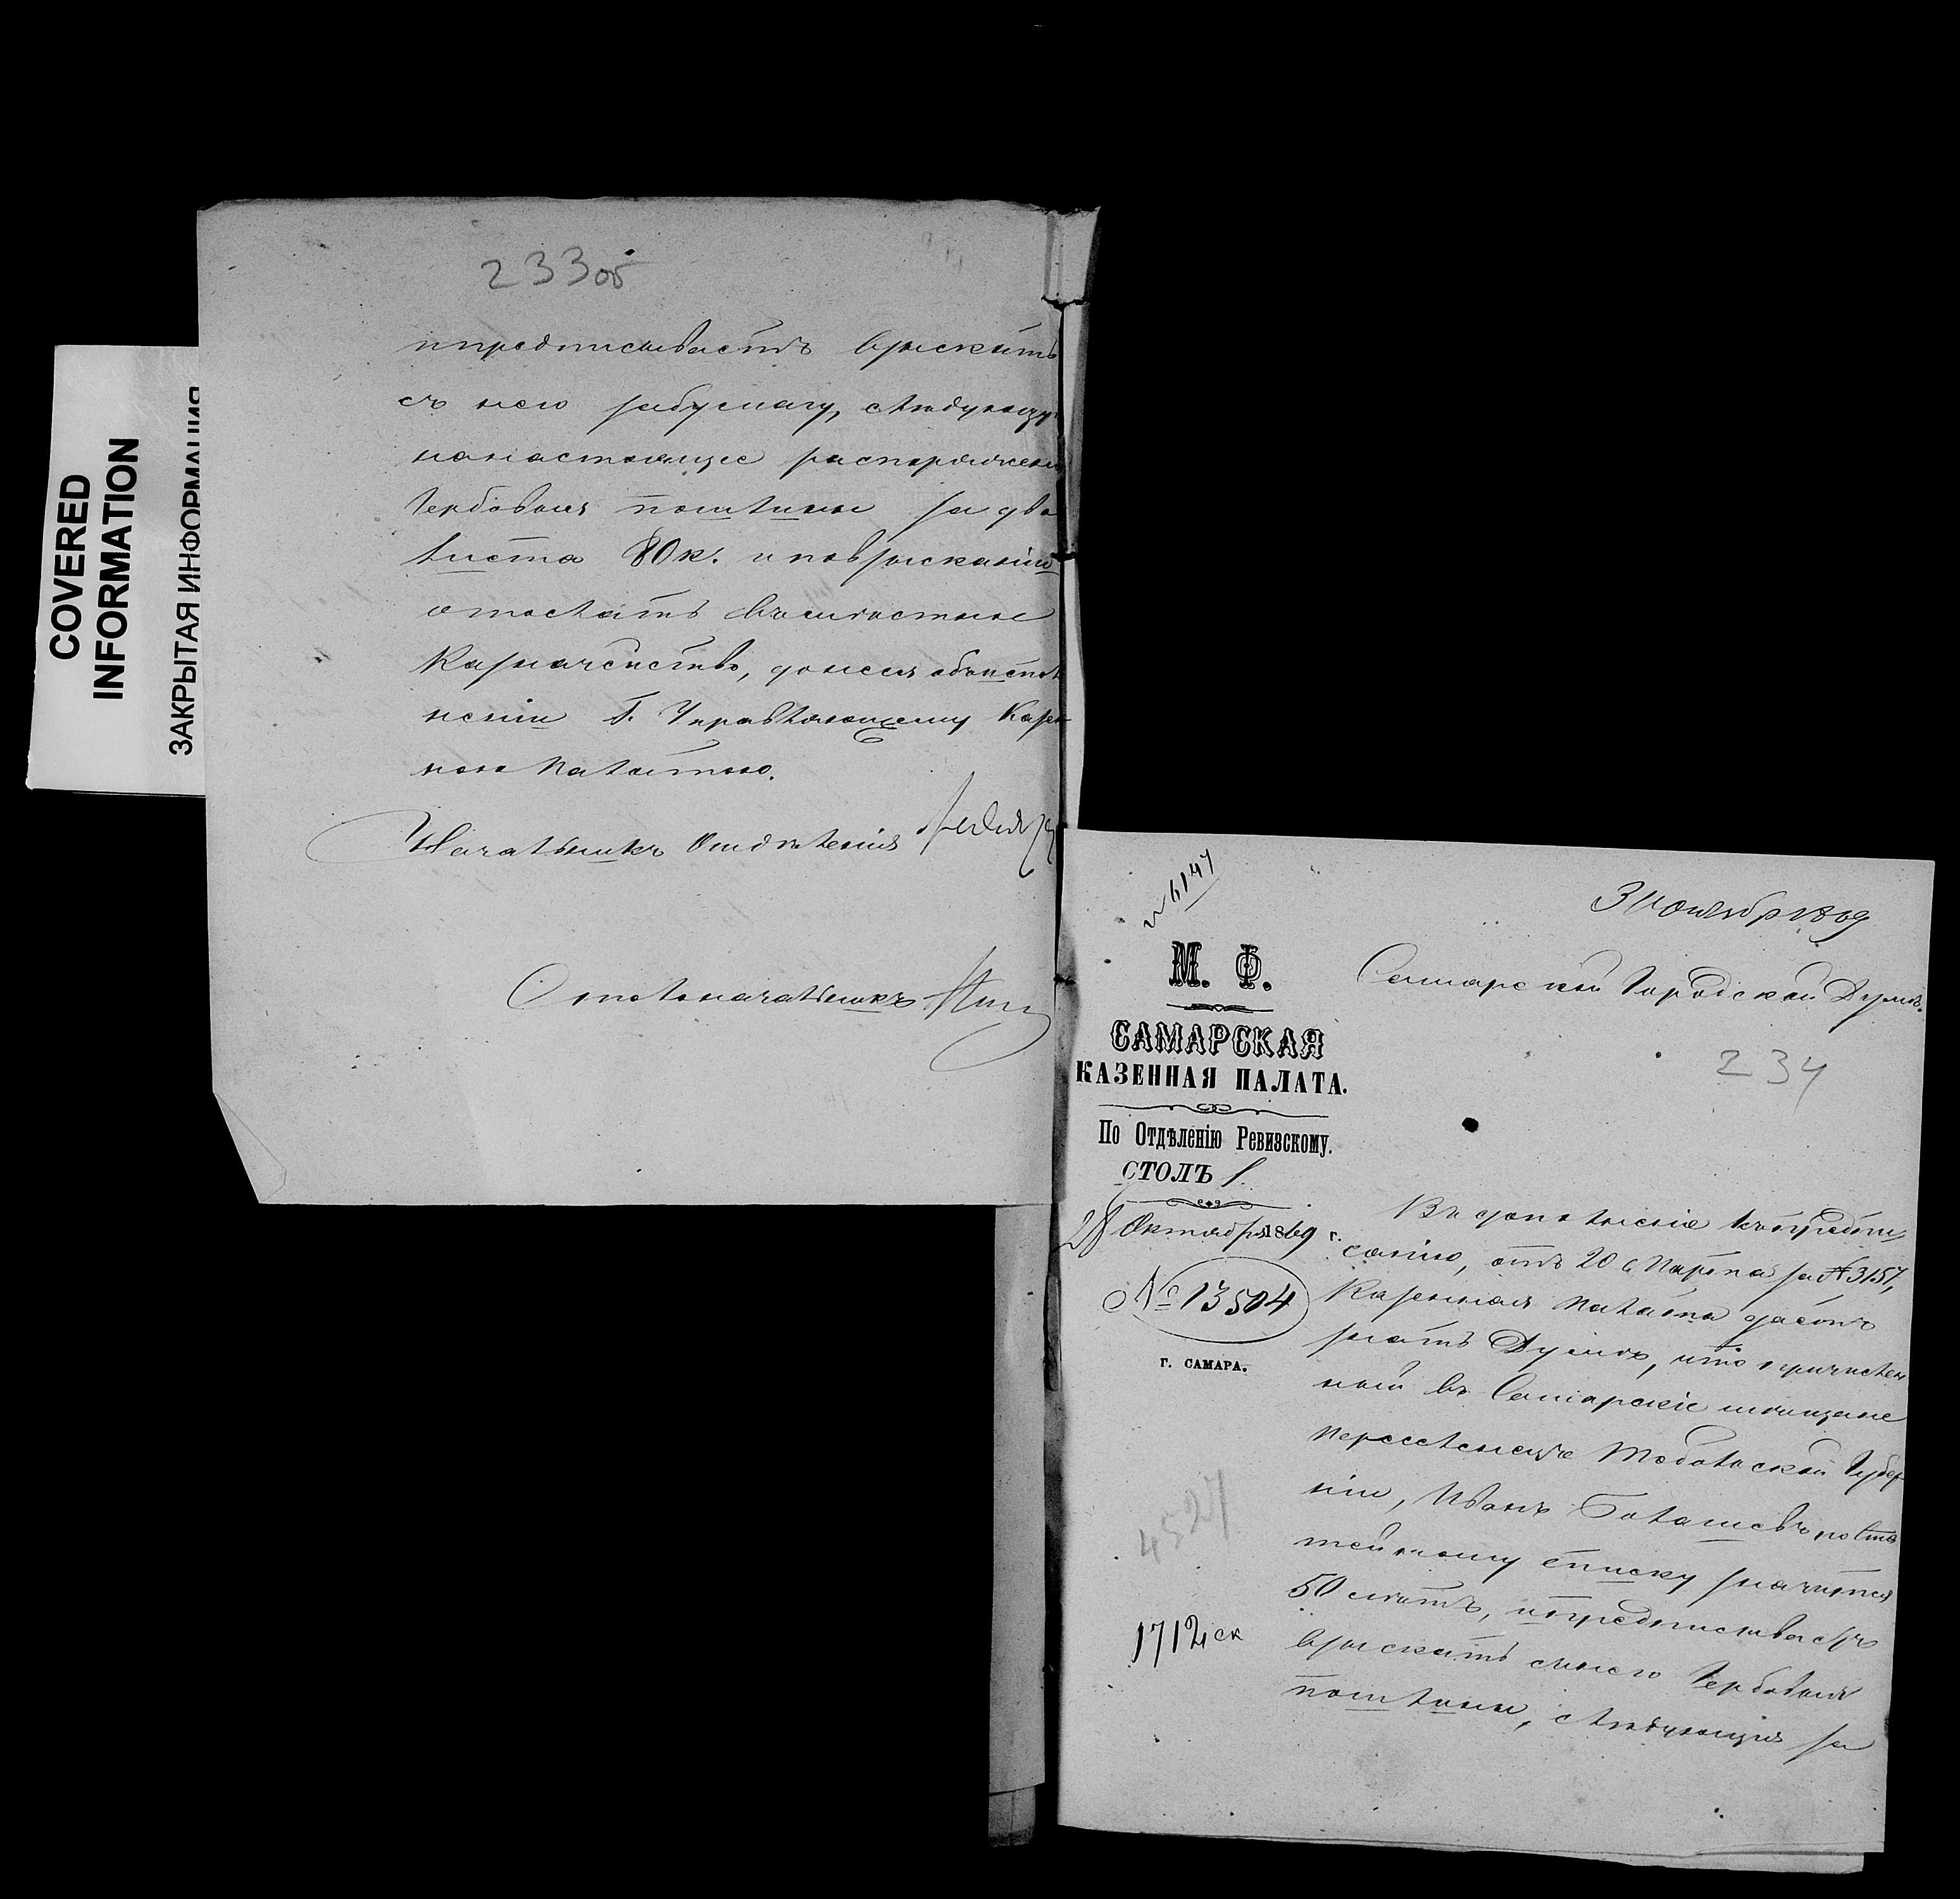 COVERED
INFORMATION
ЗАКРЫТАЯ ИНФОРМАЦИЯ
233об
и предписываетъ взыскать
съ него за бумагу, следующую
на настоящее распоряжен
гербовыя пошлины за два
листа 80 к. и по взысканiи
отослать въ местное
Казначейство, донеся объ испол
ненiи Г. Управляющему Казен
ною Палатою.
Начальникъ Отделенiя
Столоначальникъ
№ 6147
3 Ноября 1869
М. Ф.
САМАРСКАЯ
КАЗЕННАЯ ПАЛАТА.
По Отдѣленію Ревизскому.
СТОЛЪ 1
28 Октября 1869 г.
№ 13504
Г. САМАРА.
4527
1712 ск
Самарской Городской Думѣ.
234
Въ дополненiе къ предпи
санiю, отъ 20 Марта за № 3157,
Казенная Палата даетъ
знать Думѣ, что причислен
ный въ Самарскiе мѣщане
переселенецъ Тобольской Губер
нiи, Иванъ по
тейному списку значится
50 лѣтъ, и предписываетъ
взыскать съ него Гербовыя
пошлины, слѣдующiя за